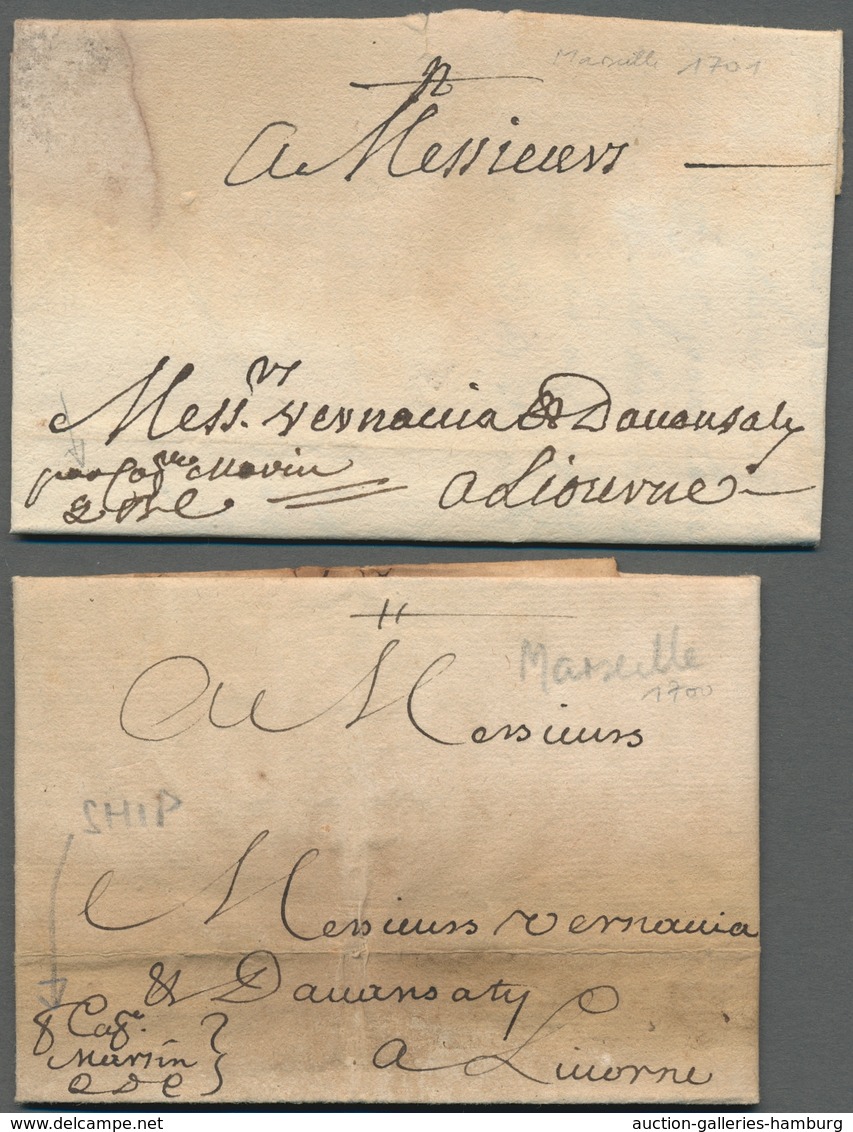 Marseille 1701
A Messieurs
Mess.rs Vernaccia & Dauansaty
par Cap.ne Marin
A Liourne
Marseille
1700
A Messieurs
SHIP
Messieurs Vernacia
& Dauansaty
Cap.e
Marsin
a Liuorne
auction-galleries-hamburg